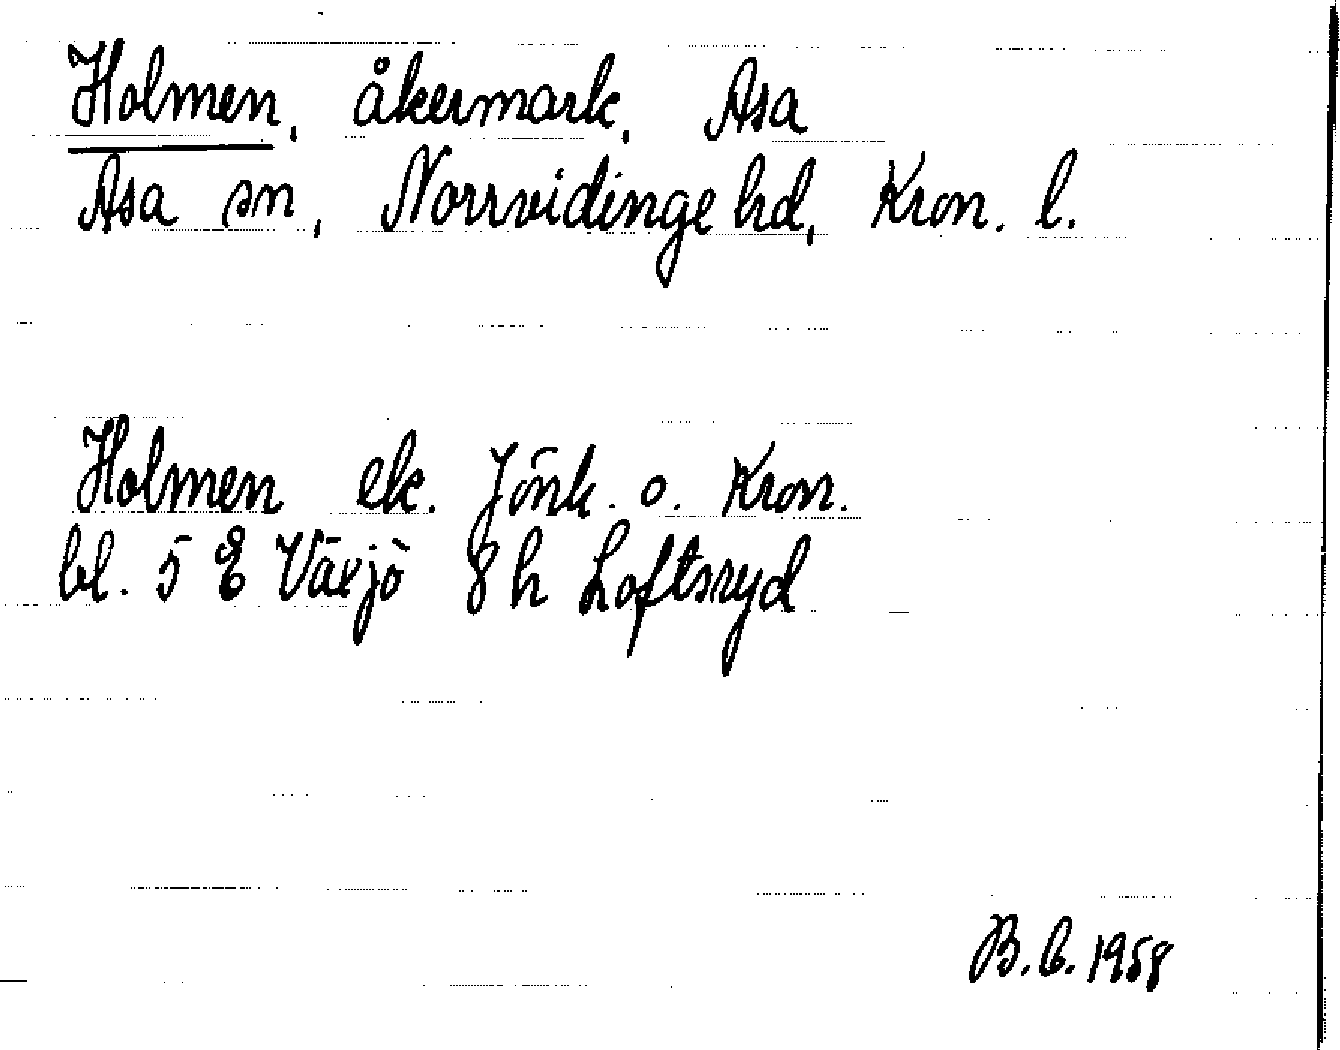 Holmen, åkermark, Asa
Asa sn, Norrvidinge hd, Kron. l.
Holmen ek. Jönk. o. Kron.
bl. 5 E Växjö 8 h Loftsryd
B. C. 1958